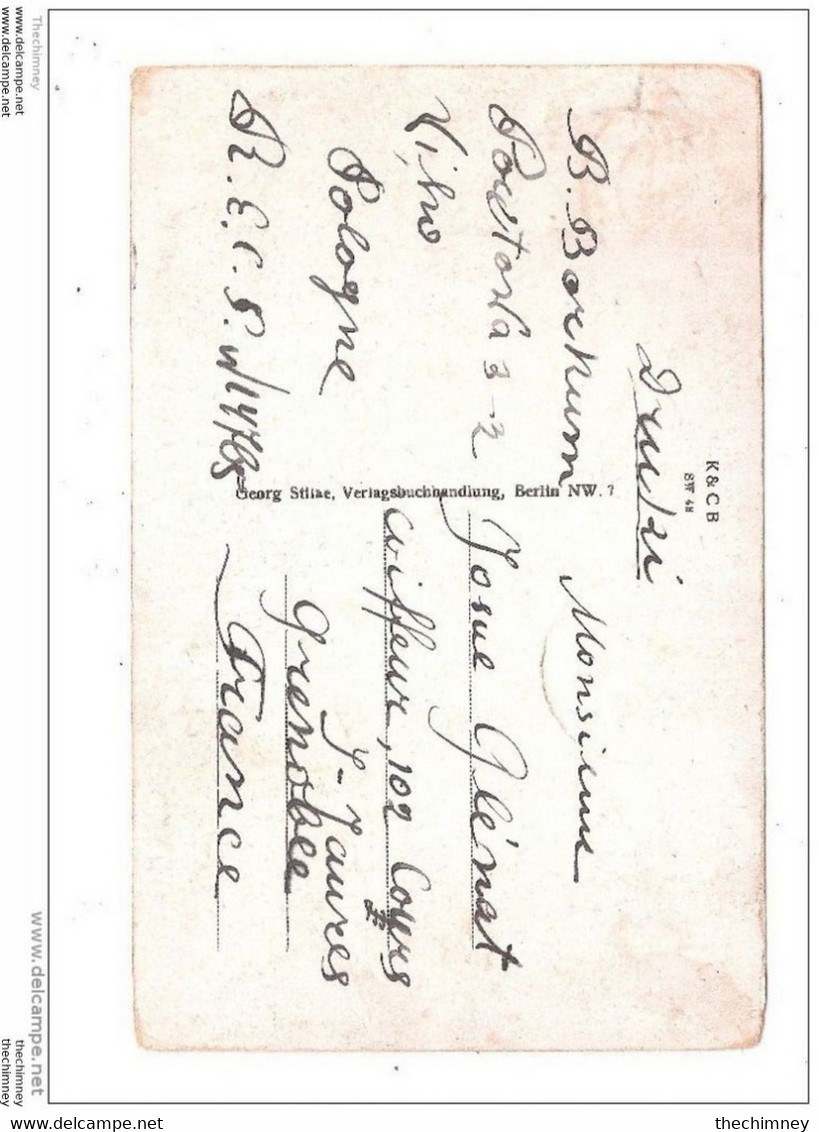 K & C B
SW 48
Druki
B. Borkum
Vilno
Pologne
R.E.C.S.
Georg Stilke, Verlagsbuchhandlung, Berlin NW. 7
Monsieur
Josué Glénat
coiffeur, 102 Cours
J-Jaures
Grenoble
France
Thechimney
www.delcampe.net
www.delcampe.net
www.delcampe.net
thechimney
thechimney
www.delcampe.net
thechimney